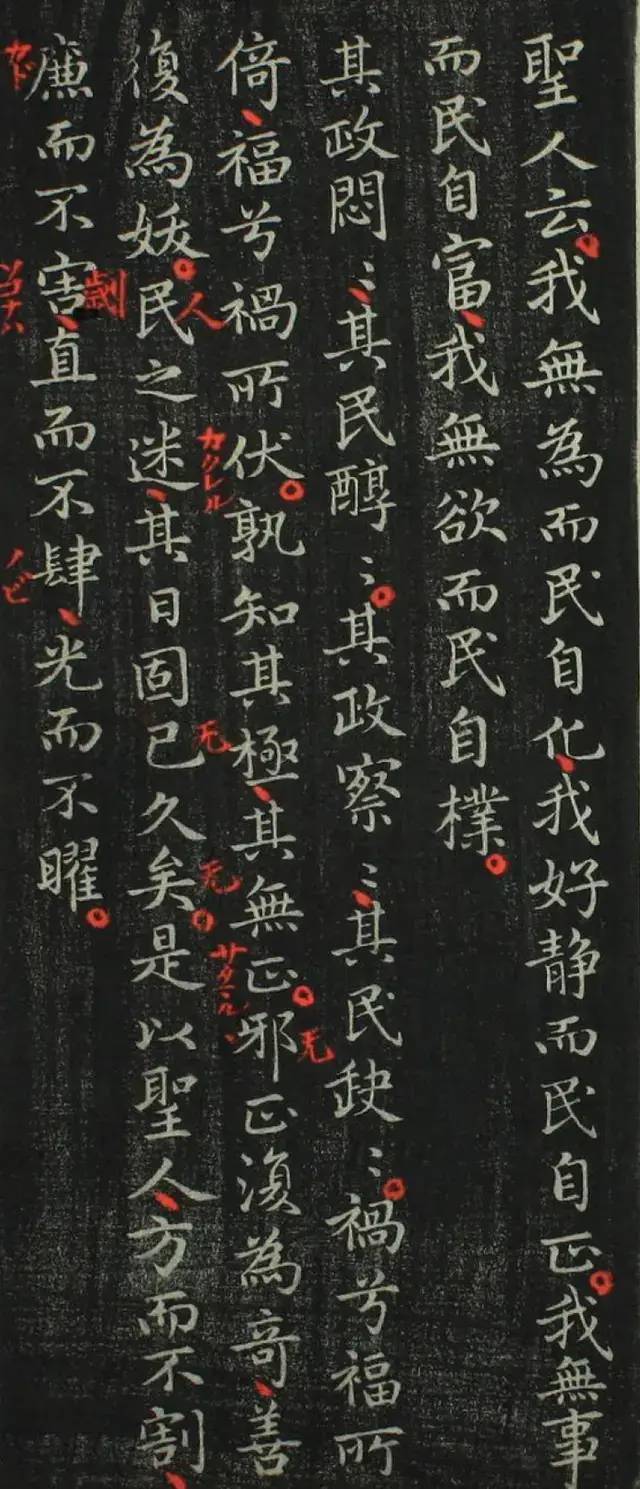 聖人云。我無為而民自化、我好静而民自正。我無事
而民自富、我無欲而民自樸。
其政悶〻、其民醇〻。其政察〻、其民缺〻。禍兮福所
无
倚、福兮禍所伏。孰知其極、其無正。邪正復為奇、善
人
カクレル
无
无
復為妖。民之迷、其日固已久矣。是以聖人、方而不割、
劌
廉而不害、直而不肆、光而不曜。
カド
ソコナハ
ノビ